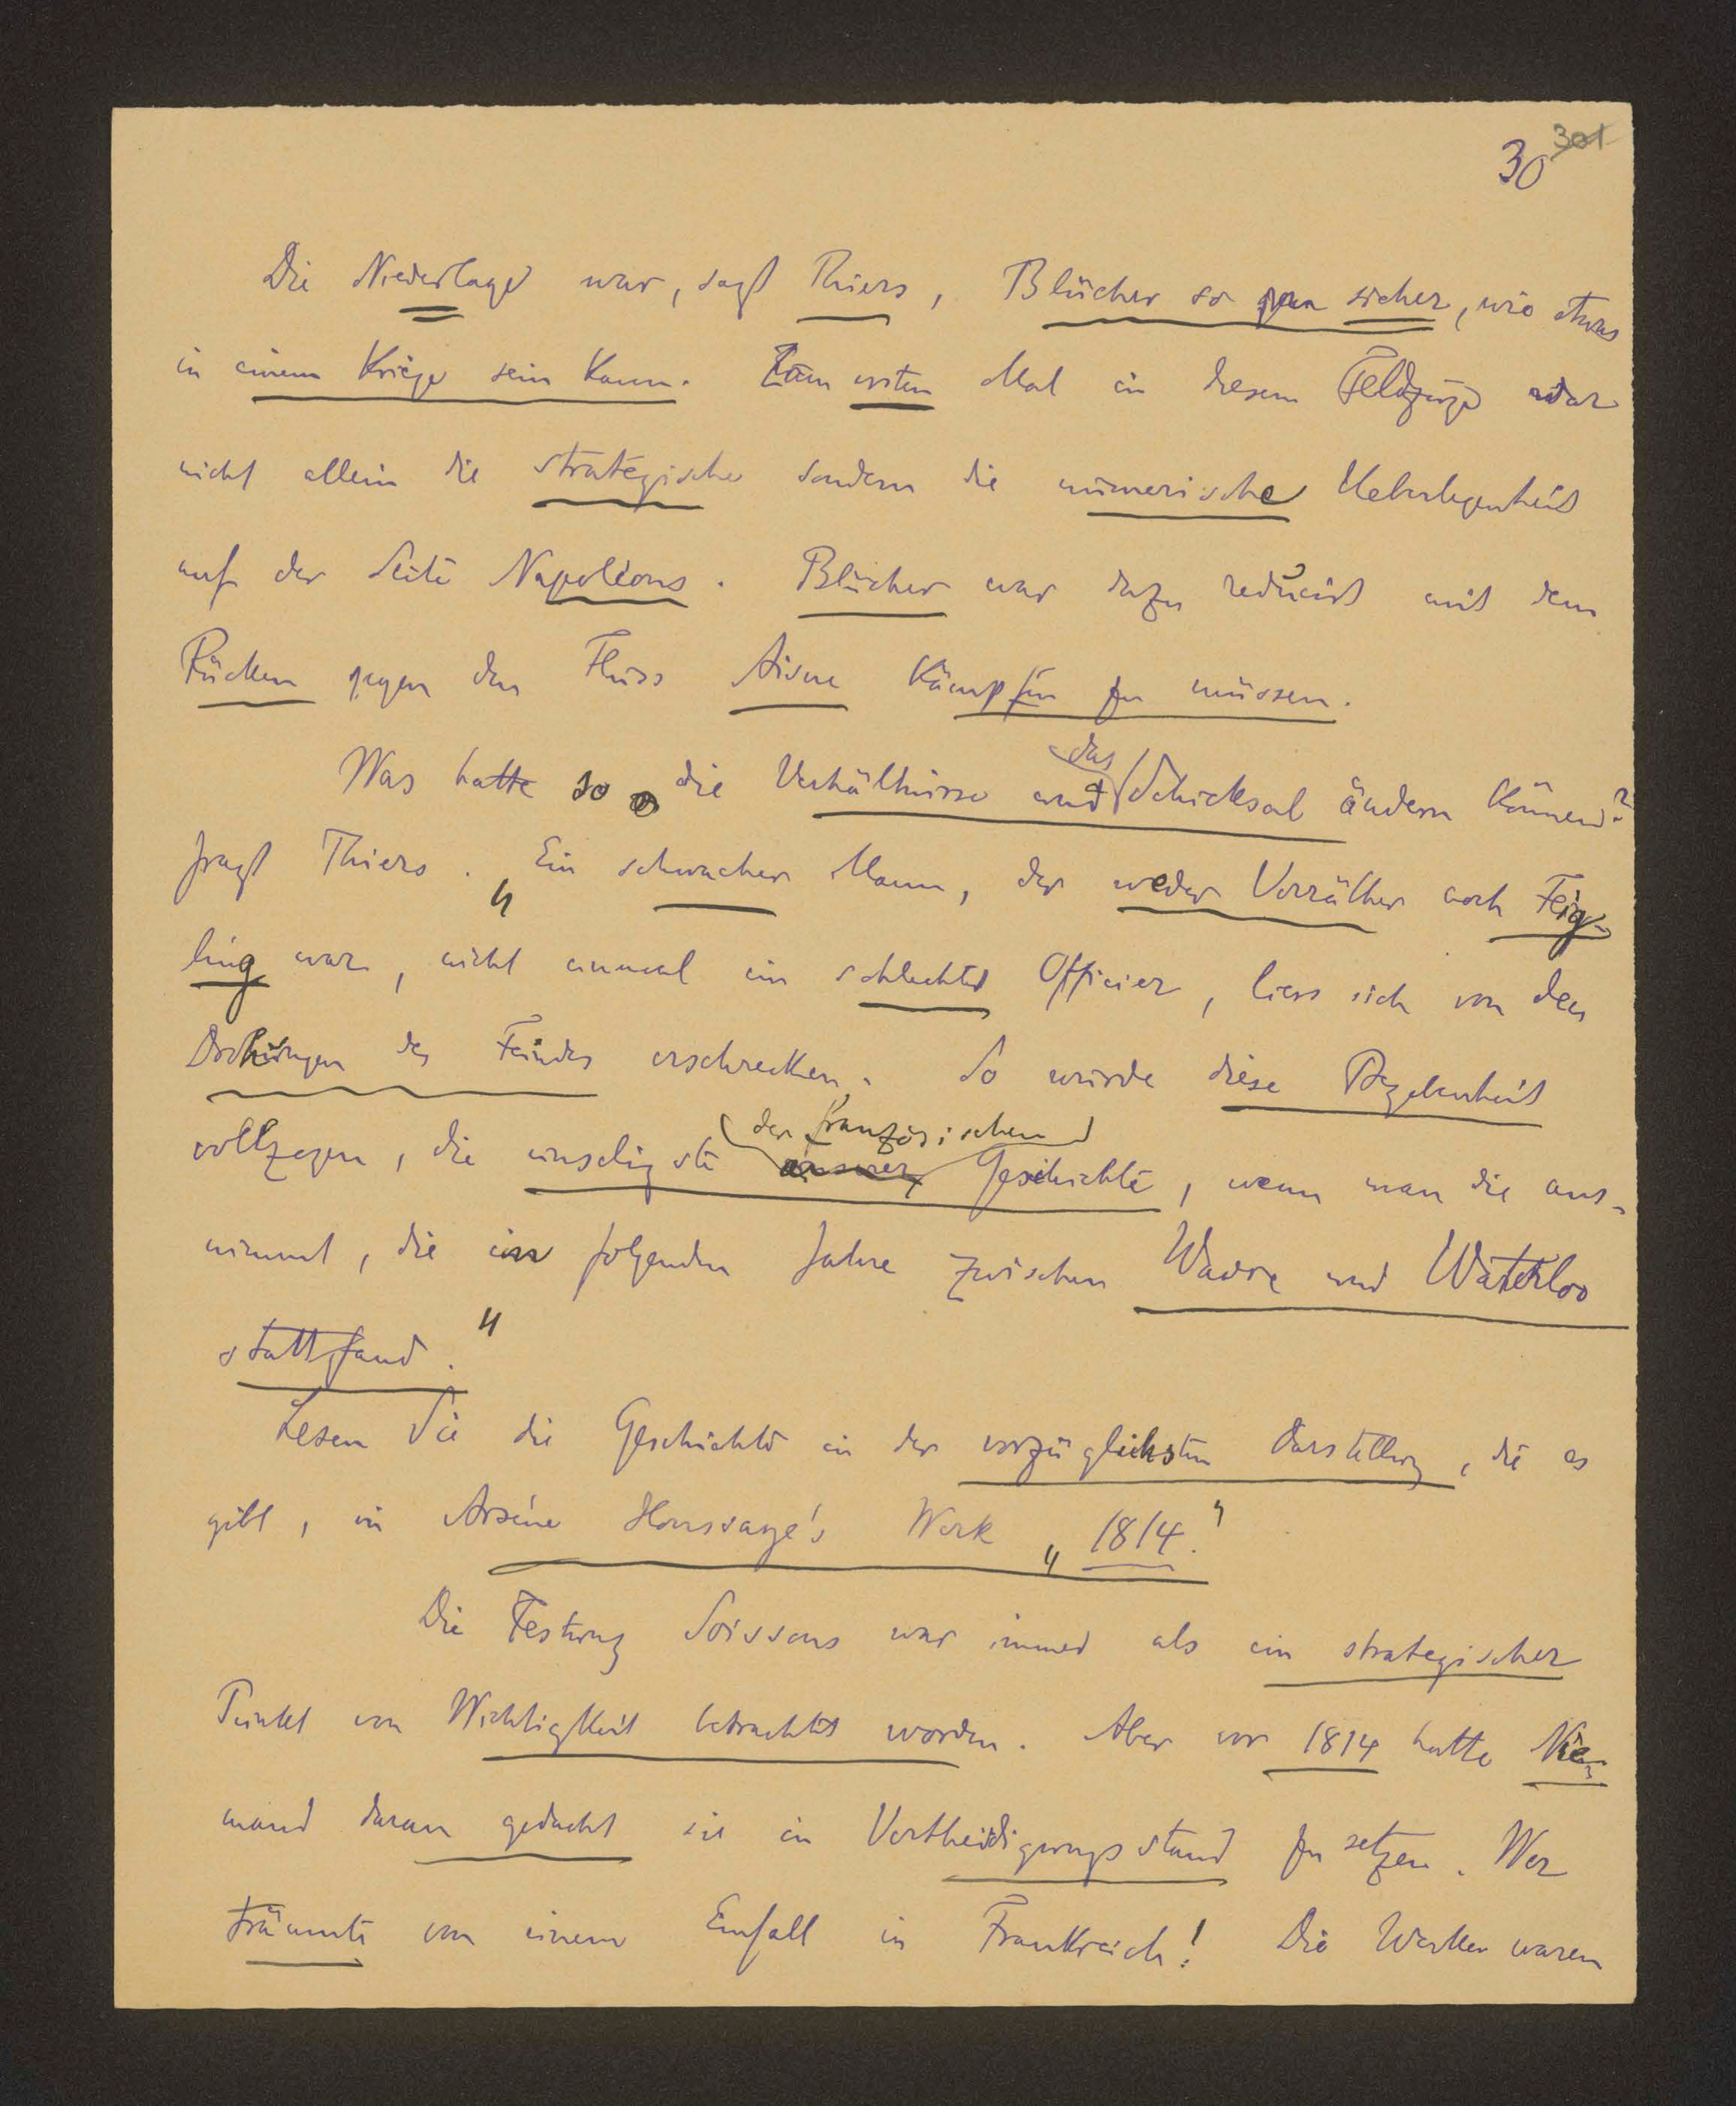 30 301
Die Niederlage war, sagt Thiers, Blücher so sicher, wie etwas
in einem Kriege sein kann. Zum ersten Mal in diesem Feldzuge war
nicht allein die strategische sondern die numerische Ueberlegenheit
auf der Seite Napoleons. Blücher war dazu reducirt mit dem
Rücken gegen den Fluss Aisne kämpfen zu müssen.
Was hatte so die Verhältnisse und das Schicksal ändern können?
fragt Thiers. „Ein schwacher Mann, der weder Verräther noch Feig-
ling war, nicht einmal ein schlechter Officier, liess sich von den
Drohungen des Feindes erschrecken. So wurde diese Begebenheit
der französischen
vollzogen, die unseligste unserer Geschichte, wenn man die aus-
nimmt, die im folgenden Jahre zwischen Wavre und Waterloo
stattfand."
Lesen Sie die Geschichte in der vorzüglichsten Darstellung, die es
gibt, in Arsène Houssaye's Werk „1814."
Die Festung Soissons war immer als ein strategischer
Punkt von Wichtigkeit betrachtet worden. Aber vor 1814 hatte Nie-
mand daran gedacht sie in Vertheidigungsstand zu setzen. Wer
träumte von einem Einfall in Frankreich! Die Werke waren